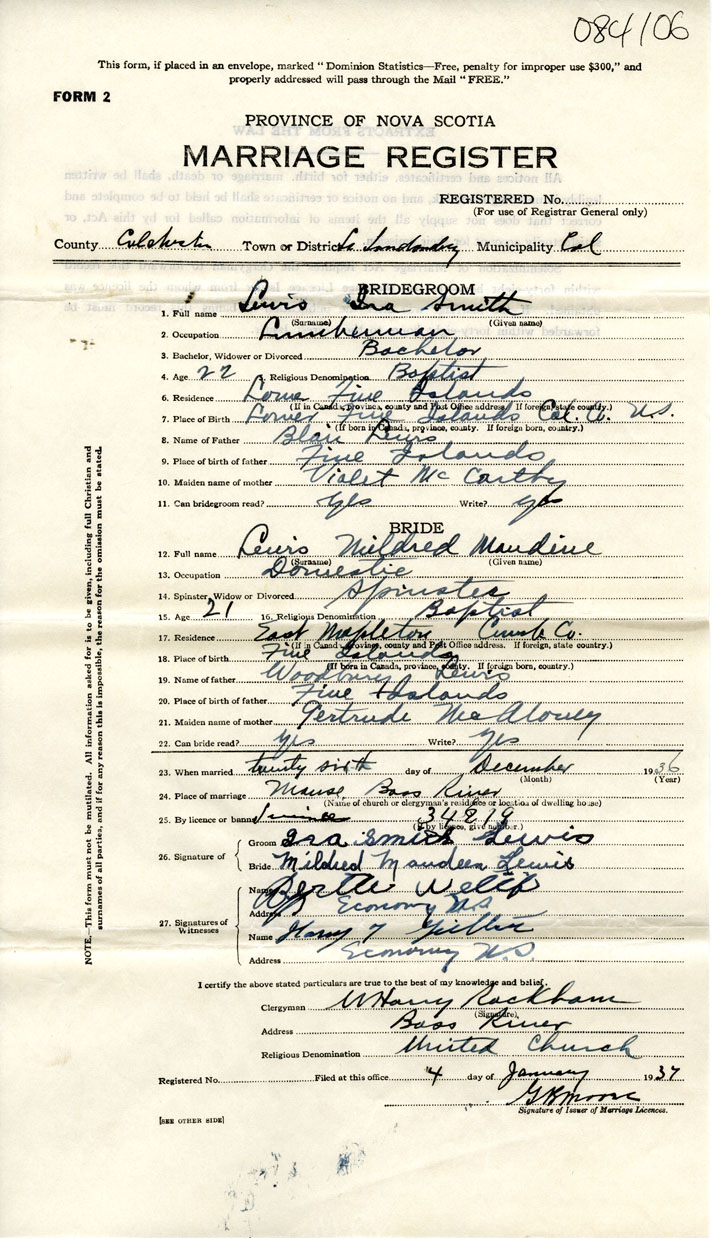 084106
This form, if placed in an envelope, marked "Dominion Statistics—Free, penalty for improper use $300," and
properly addressed will pass through the Mail "FREE."
FORM 2
PROVINCE OF NOVA SCOTIA
MARRIAGE REGISTER
REGISTERED No.
(For use of Registrar General only)
County Colchester Town or District Londonderry Municipality Col
BRIDEGROOM
1. Full name Lewis Ira Smith
(Surname) (Given name)
2. Occupation Lumberman
3. Bachelor, Widower or Divorced Bachelor
4. Age 22 5. Religious Denomination Baptist
6. Residence Lower Five Islands
(If in Canada, province, county and Post Office address. If foreign, state country.)
7. Place of Birth Lower Five Islands Col. Co. N.S.
(If born in Canada, province, county. If foreign born, country.)
8. Name of Father Blair Lewis
9. Place of birth of father Five Islands
10. Maiden name of mother Violet McCarthy
11. Can bridegroom read? yes Write? yes
BRIDE
12. Full name Lewis Mildred Maudine
(Surname) (Given name)
13. Occupation Domestic
14. Spinster, Widow or Divorced Spinster
15. Age 21 16. Religious Denomination Baptist
17. Residence East Mapleton Cumb Co.
(If in Canada, province, county and Post Office address. If foreign, state country.)
18. Place of birth Five Islands
(If born in Canada, province, county. If foreign born, country.)
19. Name of father Woodbury Lewis
20. Place of birth of father Five Islands
21. Maiden name of mother Gertrude McAloney
22. Can bride read? yes Write? yes
23. When married twenty sixth day of December 1936
(Month) (Year)
24. Place of marriage Manse Bass River
(Name of church or clergyman's residence or location of dwelling house)
25. By licence or banns 34819
(If by licence, give number.)
26. Signature of
Groom Ira Smith Lewis
Bride Mildred Maudeen Lewis
27. Signatures of Witnesses
Name Bertha
Address Economy N.S
Name Harry
Address Economy N.S.
I certify the above stated particulars are true to the best of my knowledge and belief.
Clergyman W Harry Rackham
(Signature)
Address Bass River
Religious Denomination United Church
Registered No. Filed at this office 4 day of January 1937
G R Moore
Signature of Issuer of Marriage Licences.
[SEE OTHER SIDE]
NOTE.—This form must not be mutilated. All information asked for is to be given, including full Christian and
surnames of all parties, and if for any reason this is impossible, the reason for the omission must be stated.